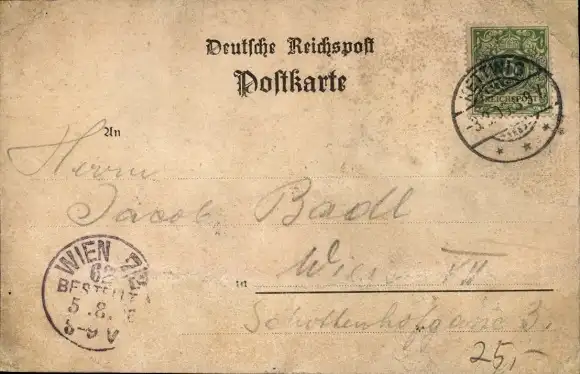 Deutsche Reichspost
Postkarte
REICHSPOST
An
Herrn
Jacob Badl
in Wien VII
Schottenhofgasse 3.
WIEN 7/2
62
BESTELLT
5.8.
8-9 V
25,-